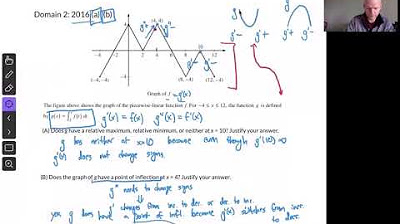 Domain 2: 2016 (a) (b)
g'+
g''-
g'-
g'-
(4, 4)
(-4, -4)
(8, -4)
(12, -4)
g
g'-
g'+
g
g'+
g'-
Graph of f = g'(x)
The figure above shows the graph of the piecewise-linear function f. For -4 ≤ x ≤ 12, the function g is defined
by g(x) = ∫ f(t) dt. g'(x) = f(x) g''(x) = f'(x)
(A) Does g have a relative maximum, relative minimum, or neither at x = 10? Justify your answer.
g has neither at x=10 because even though g'(10)=0
g'(x) does not change signs
(B) Does the graph of g have a point of inflection at x = 4? Justify your answer.
g'' needs to change signs
g' changes from inc. to der. or der. to inc.
yes g does have a point of infl. because g'(x) switches from incr.
to decr.